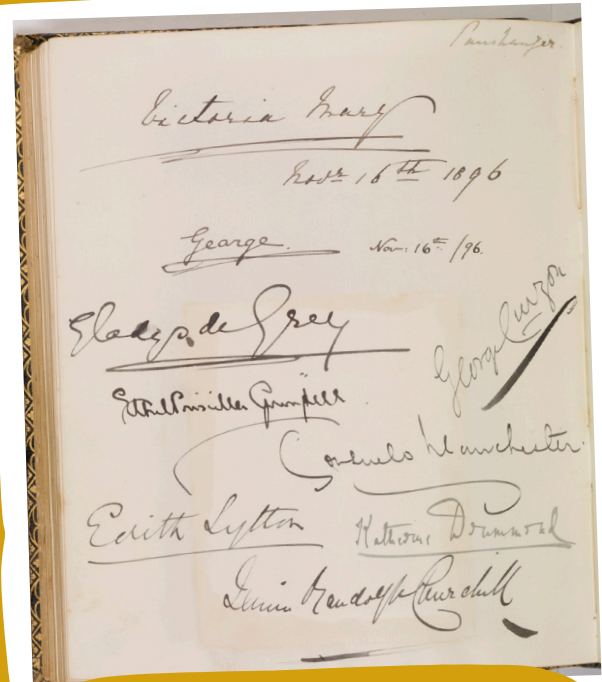 Panshanger.
Victoria Mary
Novr 16th 1896
George. Nov: 16th /96.
Gladys de Grey
George Curzon
Ethel Priscilla Grenfell
Consuelo Manchester.
Edith Lytton
Katherine Drummond
Jennie Randolph Churchill